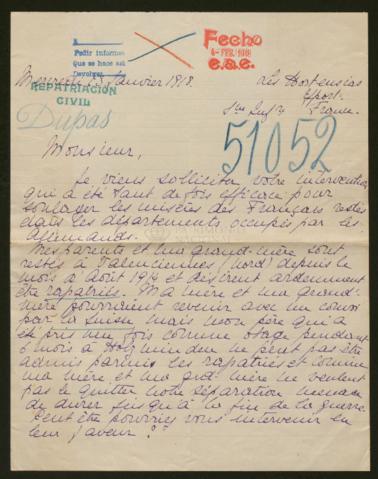 A
Pedir informes
Que se hace así
Devolver
Fecho
4-FEB. 1918
e.a.e.
Mercredi Janvier 1918.
Les Hortensias
France.
REPATRIACIÓN
CIVIL
Dupas
51052
Monsieur,
Je viens solliciter votre intervention
qui a été tant de fois efficace pour
soulager les misères des Français restés
dans les départements occupés par les
Allemands.
Mes parents et ma grand-mère sont
restés à Valenciennes (Nord) depuis le
mois d'Août 1914 et désirent ardemment
être rapatriés. Ma mère et ma grand-
mère pourraient revenir avec un convoi
par la Suisse, mais mon père qui a
été pris une fois comme otage pendant
6 mois à Holzminden ne peut pas être
admis parmi les rapatriés et comme
ma mère et ma grd-mère ne veulent
pas le quitter notre séparation menace
de durer jusqu'à la fin de la guerre.
Peut être pourriez vous intervenir en
leur faveur?